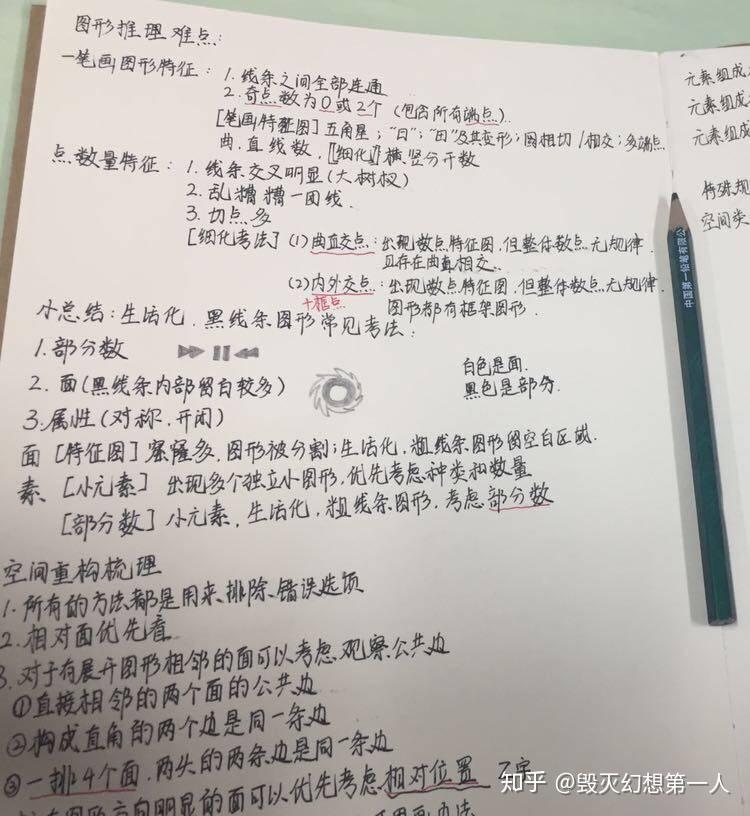 图形推理难点:
一笔画图形特征: 1. 线条之间全部连通
2. 奇点数为0或2个 (包含所有端点).
[笔画特征图] 五角星; "日"; "田"及其变形; 圆相切/相交; 多端点
曲.直线数, [细化] 横.竖分开数
点数量特征: 1. 线条交叉明显(大树杈)
2. 乱糟糟一团线.
3. 切点多
[细化考法] (1)曲直交点: 出现数点特征图, 但整体数点无规律.
且存在曲直相交.
(2)内外交点: 出现数点特征图, 但整体数点无规律.
+框点 图形都有框架图形.
小总结: 生活化. 黑线条图形常见考法:
1. 部分数
白色是面.
2. 面(黑线条内部留白较多) 黑色是部分.
3. 属性(对称. 开闭)
面 [特征图] 窟窿多, 图形被分割; 生活化, 粗线条图形留空白区域.
素、[小元素] 出现多个独立小图形, 优先考虑种类和数量
[部分数] 小元素, 生活化, 粗线条图形, 考虑部分数
空间重构梳理
1. 所有的方法都是用来排除错误选项
2. 相对面优先看
3. 对于有展开图形相邻的面可以考虑观察公共边
①直接相邻的两个面的公共边
②构成直角的两个边是同一条边
③一排4个面. 两头的两条边是同一条边
图形方向明显的面可以优先考虑相对位置 Z字
元素组成
元素组成
元素组成
特殊规
空间类
中国第一铅笔有限公
知乎 @毁灭幻想第一人